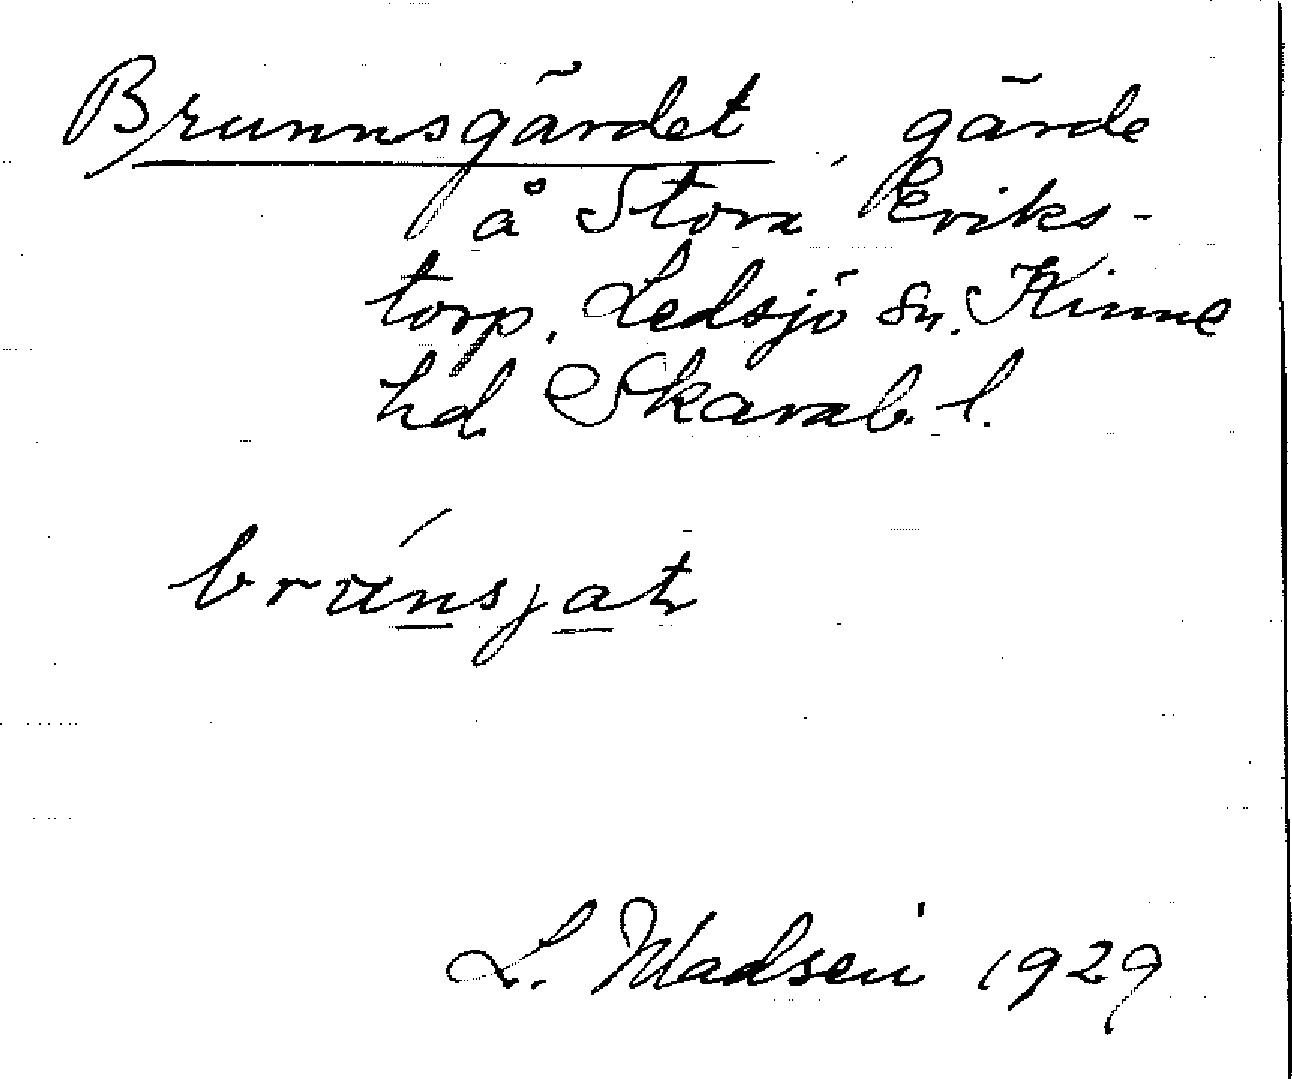 Brunnsgärdet, gärde
å Stora Eriks-
torp, Ledsjö sn. Kinne
hd Skarab. l.
L. Madsén 1929